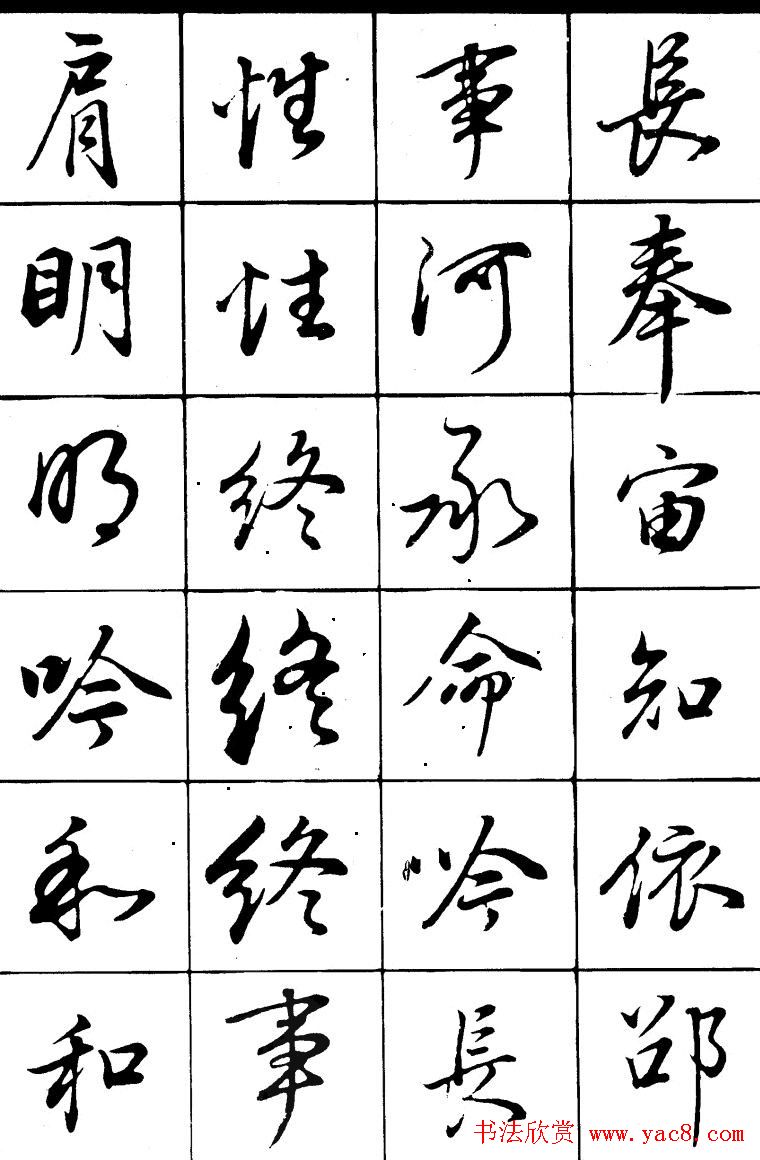 肩 性 事 長
明 性 河 奉
明 终 承 宙
吟 终 命 知
和 终 吟 依
和 事 長 邵
书法欣赏 www.yac8.com